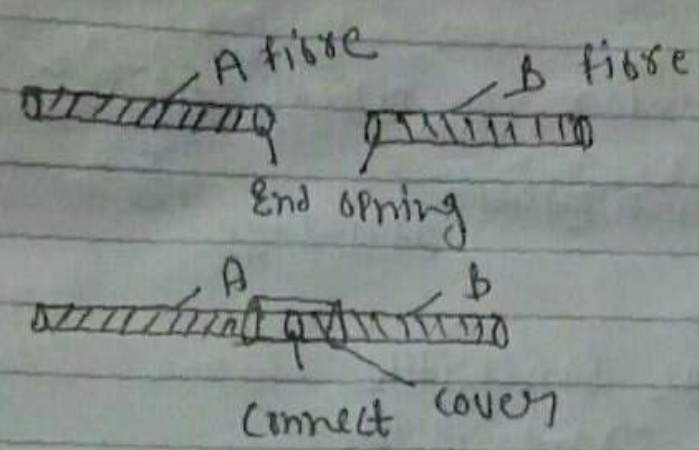 A fibre
B fibre
End opning
A
B
Connect
cover